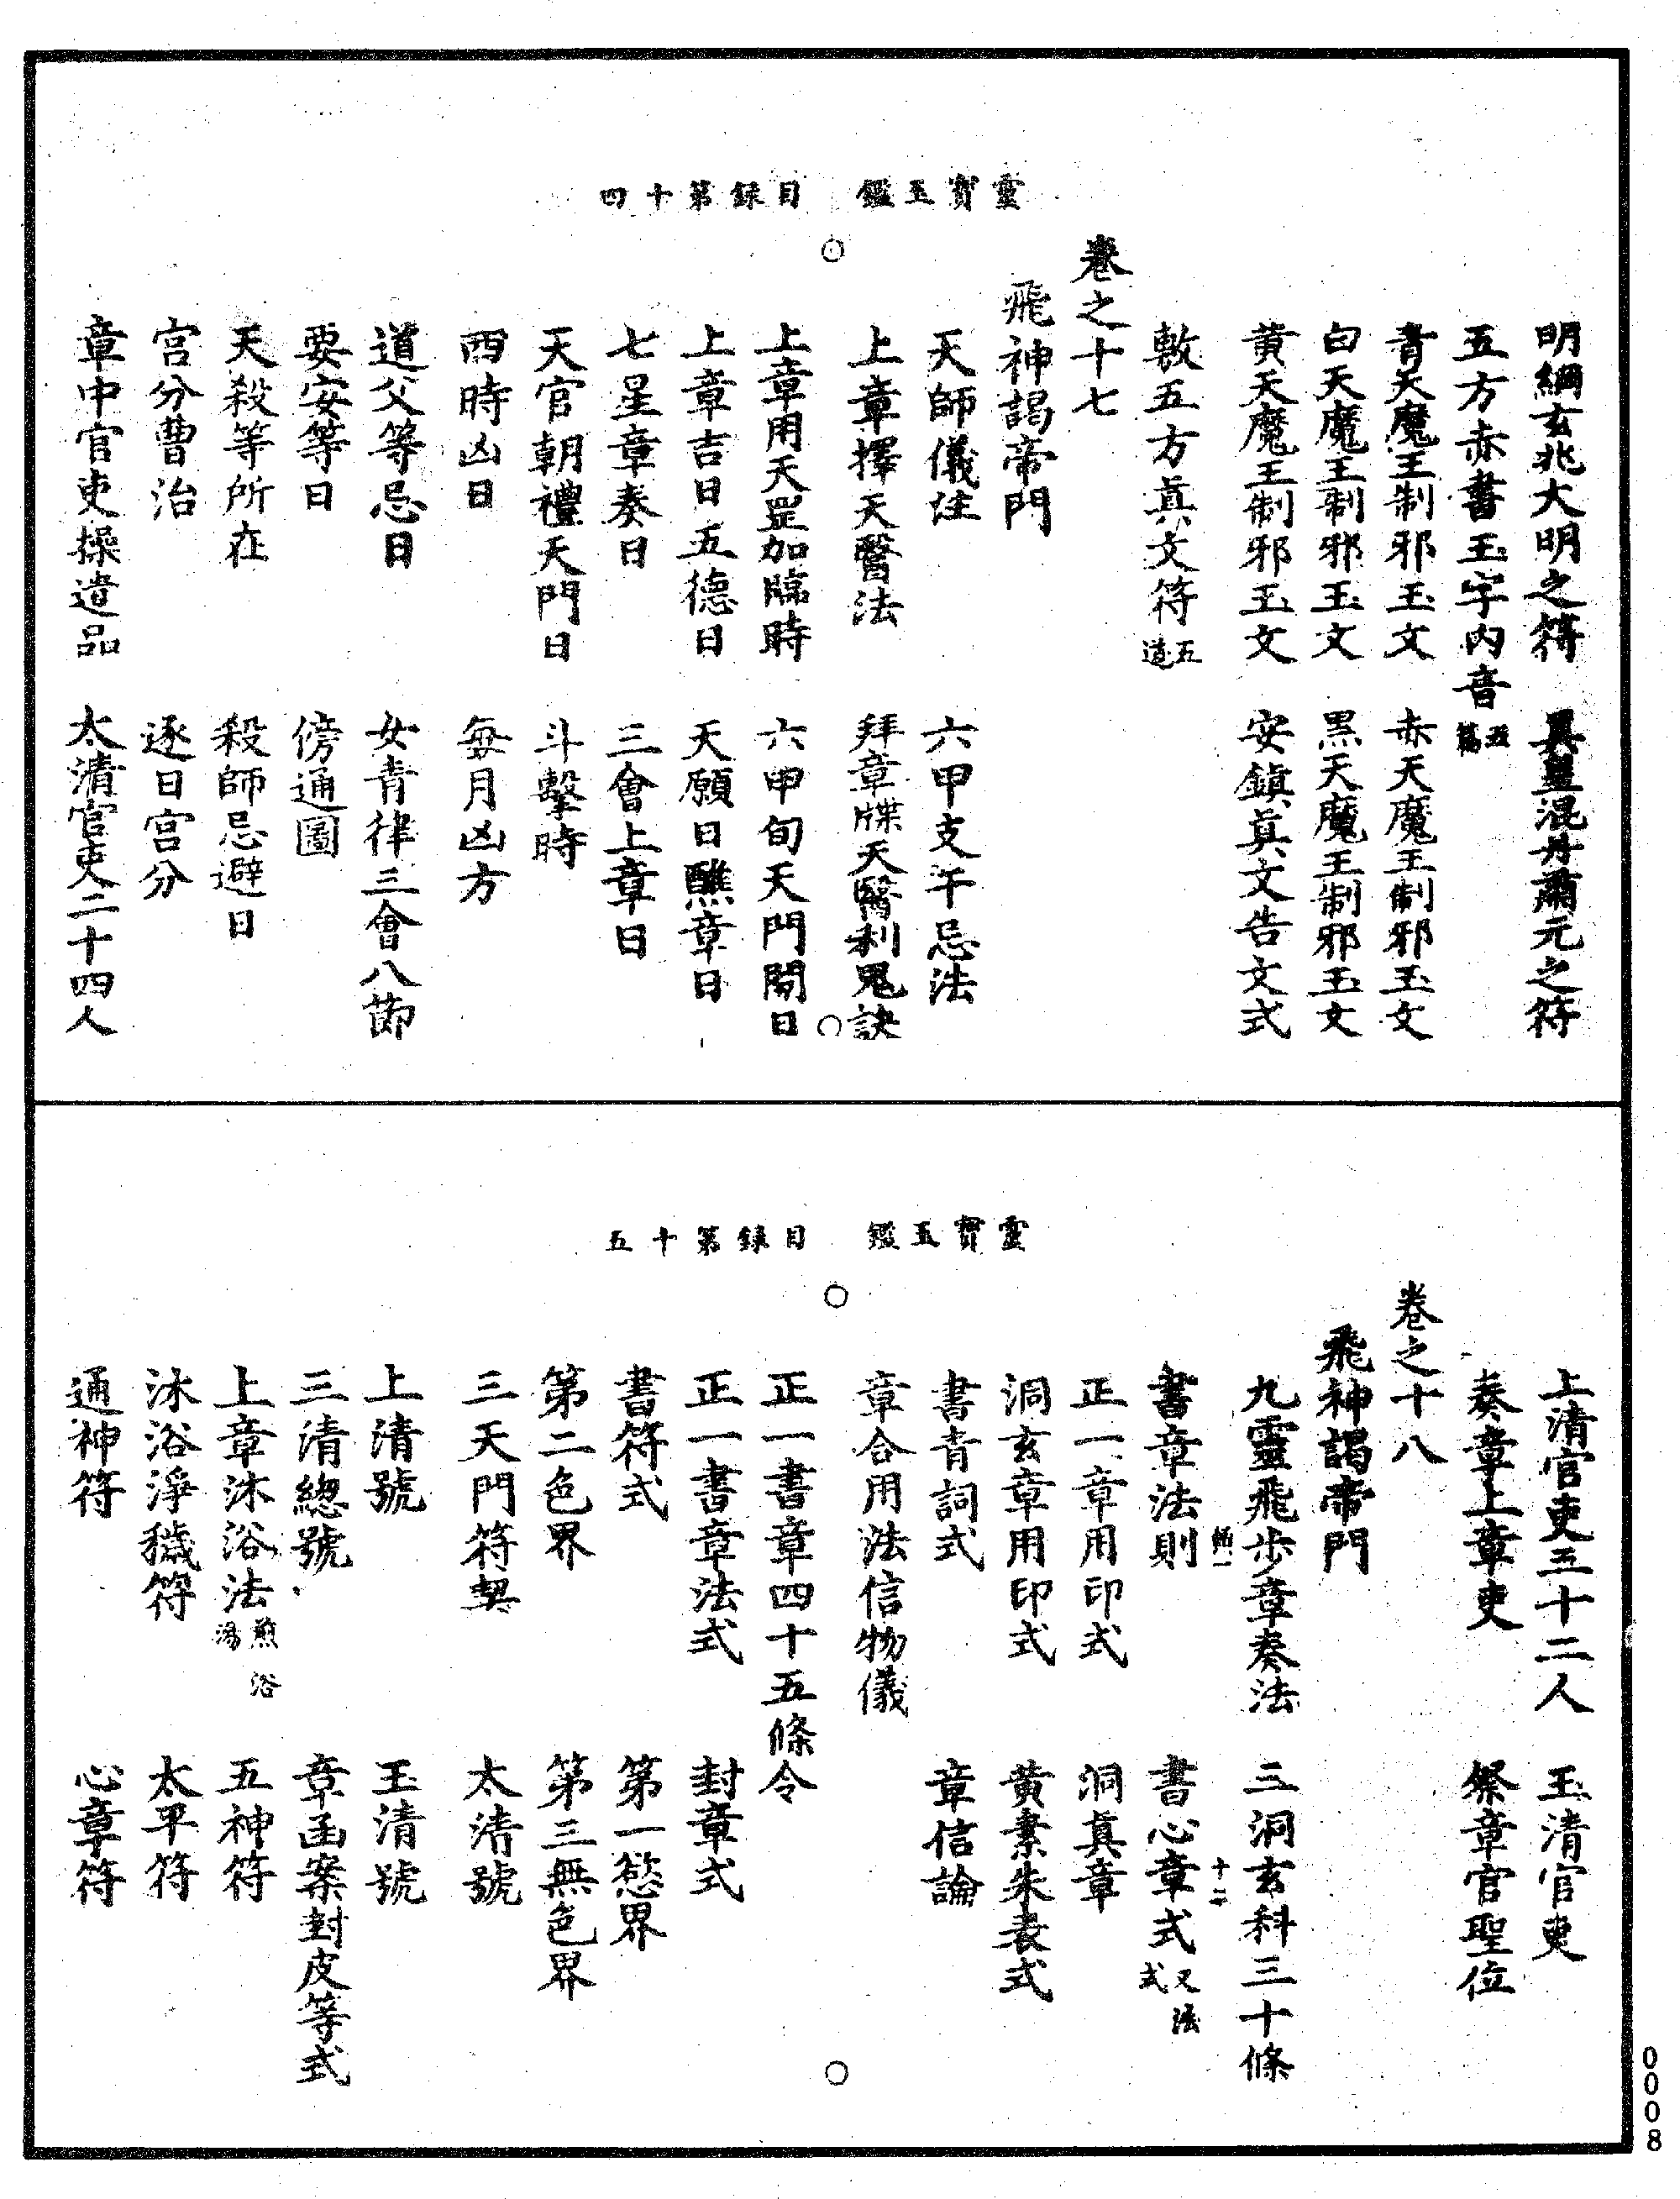 靈寶玉鑑　目錄第十四
明綱玄兆大明之符　異皇混丹肅元之符
五方赤書玉字內音五篇
青天魔王制邪玉文　赤天魔王制邪玉文
白天魔王制邪玉文　黑天魔王制邪玉文
黃天魔王制邪玉文　安鎮真文告文式
敷五方真文符五道
卷之十七
飛神謁帝門
天師儀注　六甲支干忌法
上章擇天醫法　拜章牒天醫利鬼訣
上章用天罡加臨時　六甲旬天門開日
上章吉日五德日　天願日醮章日
七星章奏日　三會上章日
天官朝禮天門日　斗擊時
四時凶日　每月凶方
道父等忌日　女青律三會八節
要安等日　傍通圖
天殺等所在　殺師忌避日
宮分曹治　逐日宮分
章中官吏操造品　太清官吏二十四人
靈寶玉鑑　目錄第十五
上清官吏三十二人　玉清官吏
奏章上章吏　祭章官聖位
卷之十八
飛神謁帝門
九靈飛步章奏法　三洞玄科三十條
書章法則　書心章式又法式
正一章用印式　洞真章
洞玄章用印式　黃素朱表式
書青詞式　章信論
章合用法信物儀
正一書章四十五條令
正一書章法式　封章式
書符式　第一慾界
第二色界　第三無色界
三天門符契　太清號
上清號　玉清號
三清總號　章函案封皮等式
上章沐浴法煎浴湯　五神符
沐浴淨穢符　太平符
通神符　心章符
0008